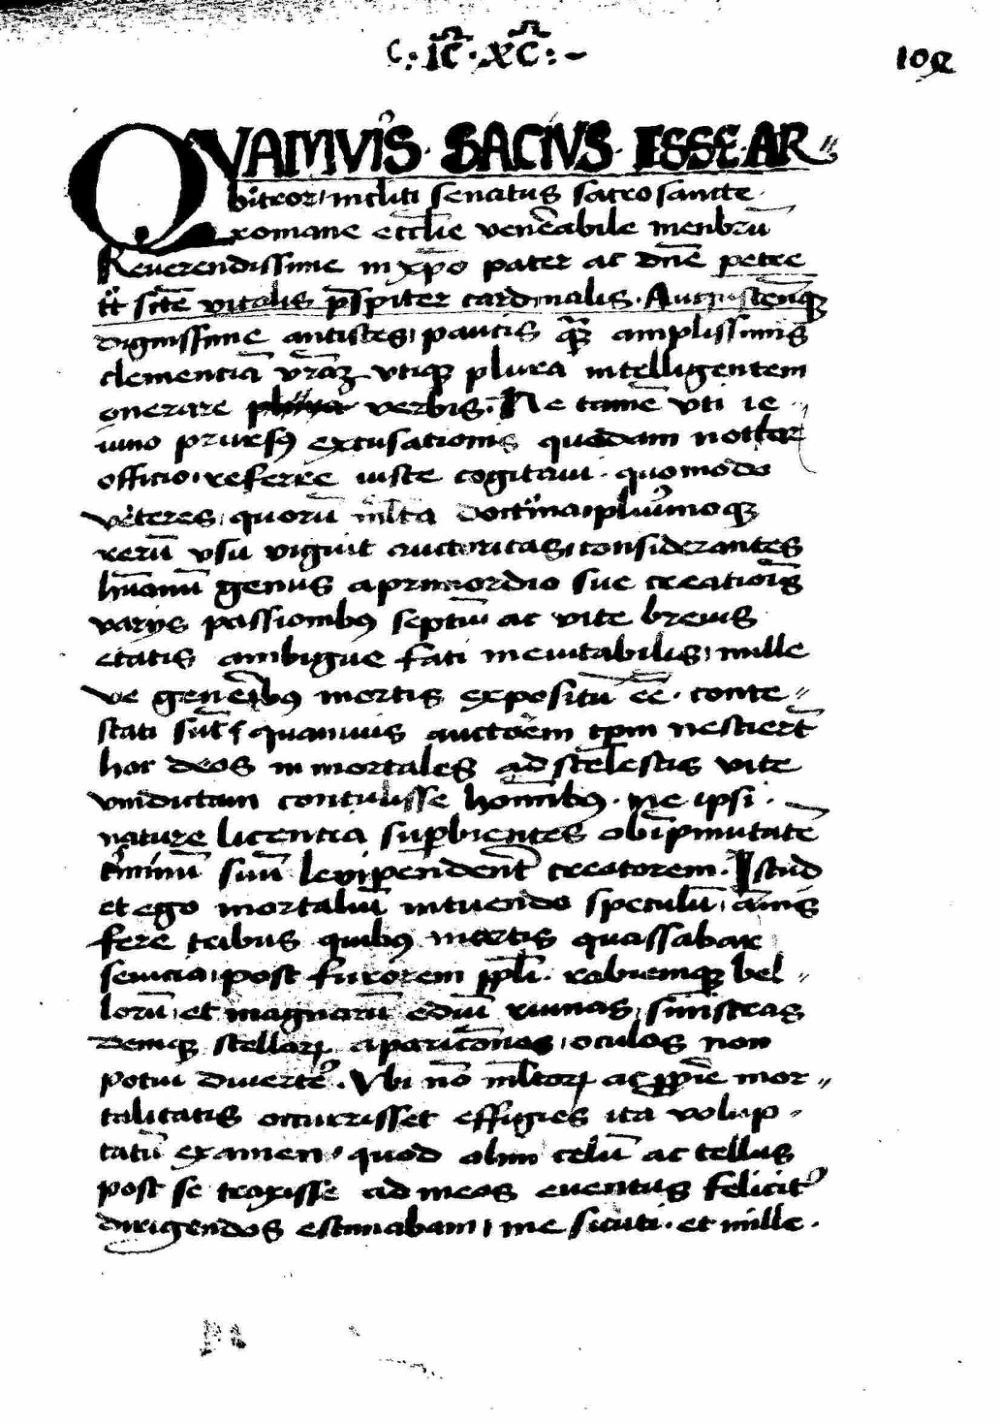 C·:· IC̅ · XC̅ :·~
109
QVAMVIS · SACIVS · ESSE · AR⸗
bitror, incliti senatus sacrosancte
romane eccl̅ie venerabile menbru̅
Reverendissime in xp̅o pater ac dn̅e petre
tt̅ scte̅ vitalis p̅sbiter cardinalis. Augustensq̃
dignissime antistes, paucis q̃ amplissimis
clementia̅ vr̅aꝫ vtiqꝫ plura intelligentem
onerare verbis. Ne tame̅ vti ie⸗
iuno prursꝰ excusationis quodam nothor
officio, referre iuste cogitaui. quomodo
veteres, quoru̅ ml̅ta doctrina, plurimoqꝫ
reru̅ vsu viguit auctoritas, considerantes
hu̅anu̅ genus a primordio sue creatio̅is
varijs passionibꝰ septu̅ ac vite breuis
etatis ambigue fati ineuitabilis, mille
ve generibꝰ mortis expositu̅ e̅e. conte⸗
stati su̅t quamuis auctore̅m tp̅rm nesciert̅
hoc deos inmortales ad scelestis vite
vindictam contulisse hom̅ibꝰ. ne ipsi
nature licentia sup̅bientes ob i̅pmutate̅
t̓minu̅ suu̅ levipendent̓ creatorem. Istud
et ego mortaliu̅ intuendo speculu̅, a̅nis
fere tribus quibꝰ mortis quassabar
seuicia, post furorem pp̅li. rabiemqꝫ bel⸗
loru̅, et magnaru̅ ediu̅ ruinas, sinistras
deniqꝫ stellaꝝ aparico̅nes, oculos non
potui diuerter̓. Vbi no̅ ml̅toꝝ ac pp̅rie mor⸗
talitatis occurrisset effigies ita volup⸗
tatu̅ examen, quod olim celu̅ ac tellus
post se traxisse ad meos euentus felicit̓
dirigendos estimabam, me sicuti. et mille.